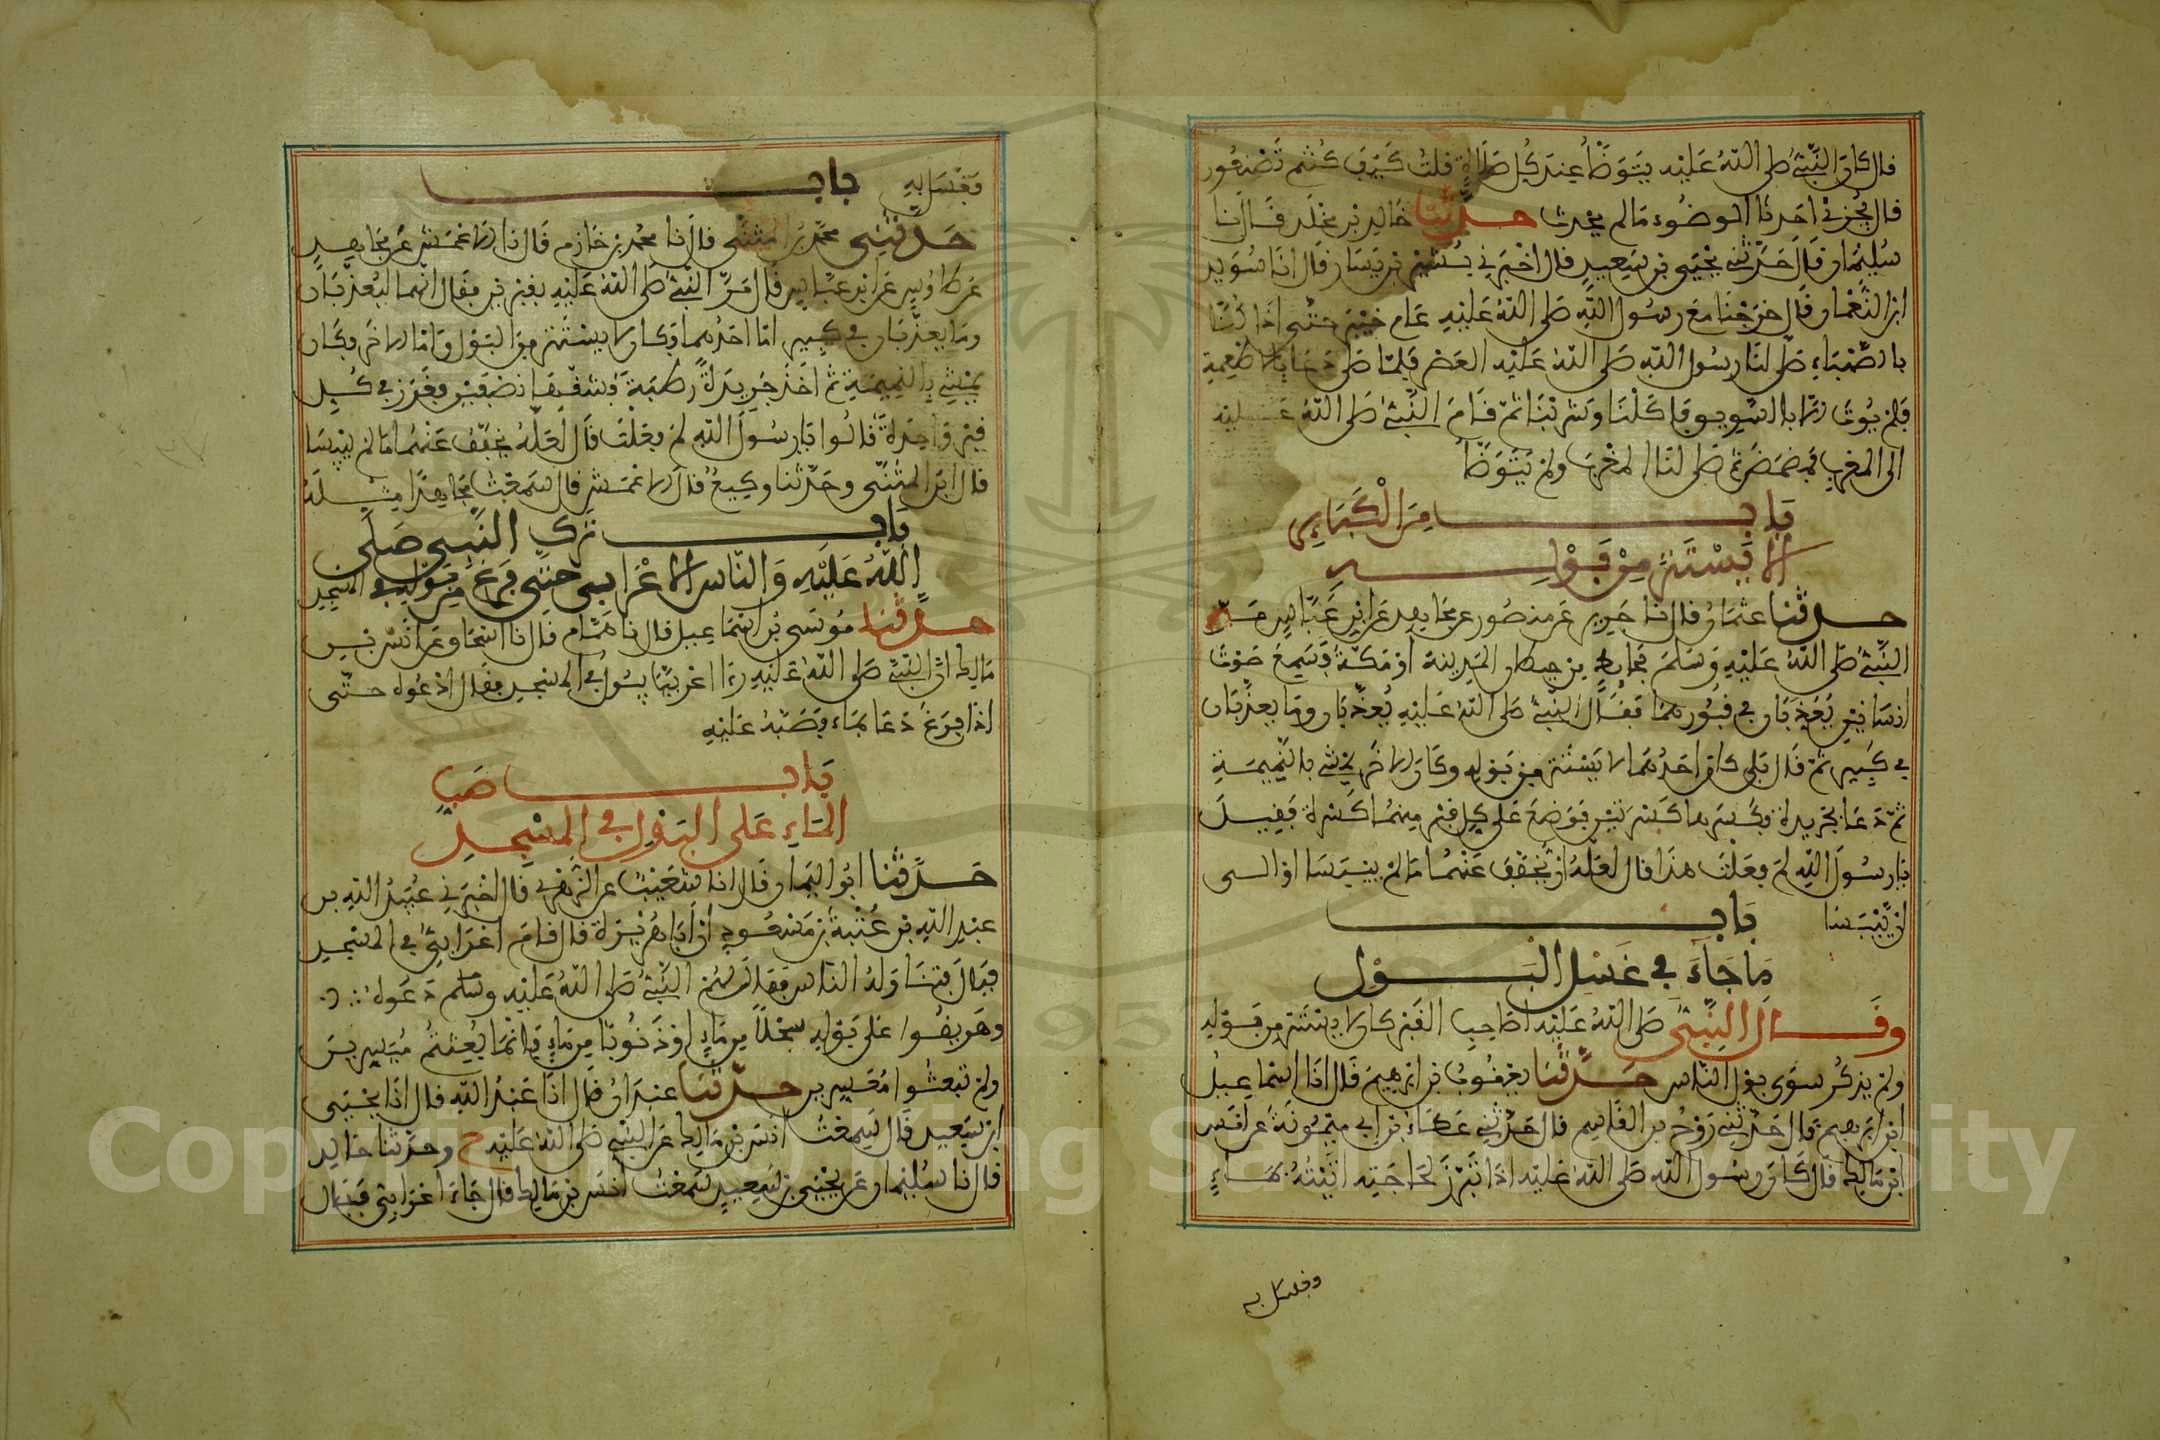 قال كان النبيء صلى الله عليه يتوضأ عند كل صلاة قلت كيف كنتم تصنعون
قال يجزئ احدنا الوضوء ما لم يحدث حدثنا خالد بن مخلد قال نا
سليمان قال حدثني يحيى بن سعيد قال اخبرني بشير بن يسار قال انا سويد
ابن النعمان قال خرجنا مع رسول الله صلى الله عليه عام خيبر حتى اذا كنا
بالصهباء صلى لنا رسول الله صلى الله عليه العصر فلما صلى دعا بالاطعمة
فلم يوت الا بالسويق فاكلنا وشربنا ثم قام النبيء صلى الله عليه
الى المغرب فمضمض ثم صلى لنا المغرب ولم يتوضأ
باب من الكبائر
الا يستتر من بوله
حدثنا عثمان قال نا جرير عن منصور عن مجاهد عن ابن عباس مر
النبيء صلى الله عليه وسلم بحائط من حيطان المدينة او مكة فسمع صوت
انسانين يعذبان في قبورهما فقال النبيء صلى الله عليه يعذبان وما يعذبان
في كبير ثم قال بلى كان احدهما لا يستتر من بوله وكان الاخر يمشي بالنميمة
ثم دعا بجريدة فكسرها كسرتين فوضع على كل قبر منهما كسرة فقيل
يا رسول الله لم فعلت هذا قال لعله ان يخفف عنهما ما لم ييبسا او الى
ان ييبسا باب
ما جاء في غسل البول
وقال النبيء صلى الله عليه لصاحب القبر كان لا يستتر من بوله
ولم يذكر سوى بول الناس حدثنا يعقوب بن ابرهيم قال انا اسماعيل
ابن ابرهيم قال حدثني روح بن القاسم قال حدثني عطاء بن ابي ميمونة عن انس
ابن مالك قال كان رسول الله صلى الله عليه اذا تبرز لحاجته اتيته بماء
فيغسل به
فيغسل به باب
حدثني محمد بن المثنى قال نا محمد بن خازم قال نا الاعمش عن مجاهد
عن طاوس عن ابن عباس قال مر النبيء صلى الله عليه بقبرين فقال انهما ليعذبان
وما يعذبان في كبير اما احدهما فكان لا يستتر من البول واما الاخر فكان
يمشي بالنميمة ثم اخذ جريدة رطبة فشقها نصفين فغرز في كل
قبر واحدة قالوا يا رسول الله لم فعلت قال لعله يخفف عنهما ما لم ييبسا
قال ابن المثنى وحدثنا وكيع قال نا الاعمش قال سمعت مجاهدا مثله
باب ترك النبي صلى
الله عليه والناس الاعرابي حتى فرغ من بوله في المسجد
حدثنا موسى بن اسماعيل قال نا همام قال نا اسحاق عن انس بن
مالك ان النبيء صلى الله عليه رءا اعرابيا يبول في المسجد فقال دعوه حتى
اذا فرغ دعا بماء فصبه عليه
باب صب
الماء على البول في المسجد
حدثنا ابو اليمان قال انا شعيب عن الزهري قال اخبرني عبيد الله بن
عبد الله بن عتبة بن مسعود ان ابا هريرة قال قام اعرابي في المسجد
فبال فتناوله الناس فقال لهم النبيء صلى الله عليه وسلم دعوه
وهريقوا على بوله سجلا من ماء او ذنوبا من ماء فانما بعثتم ميسرين
ولم تبعثوا معسرين حدثنا عبدان قال انا عبد الله قال انا يحيى
ابن سعيد قال سمعت انس بن مالك عن النبي صلى الله عليه ح وحدثنا خالد
قال نا سليمان عن يحيى بن سعيد سمعت انس بن مالك قال جاء اعرابي فبال
Copyright © King Saud University
1957